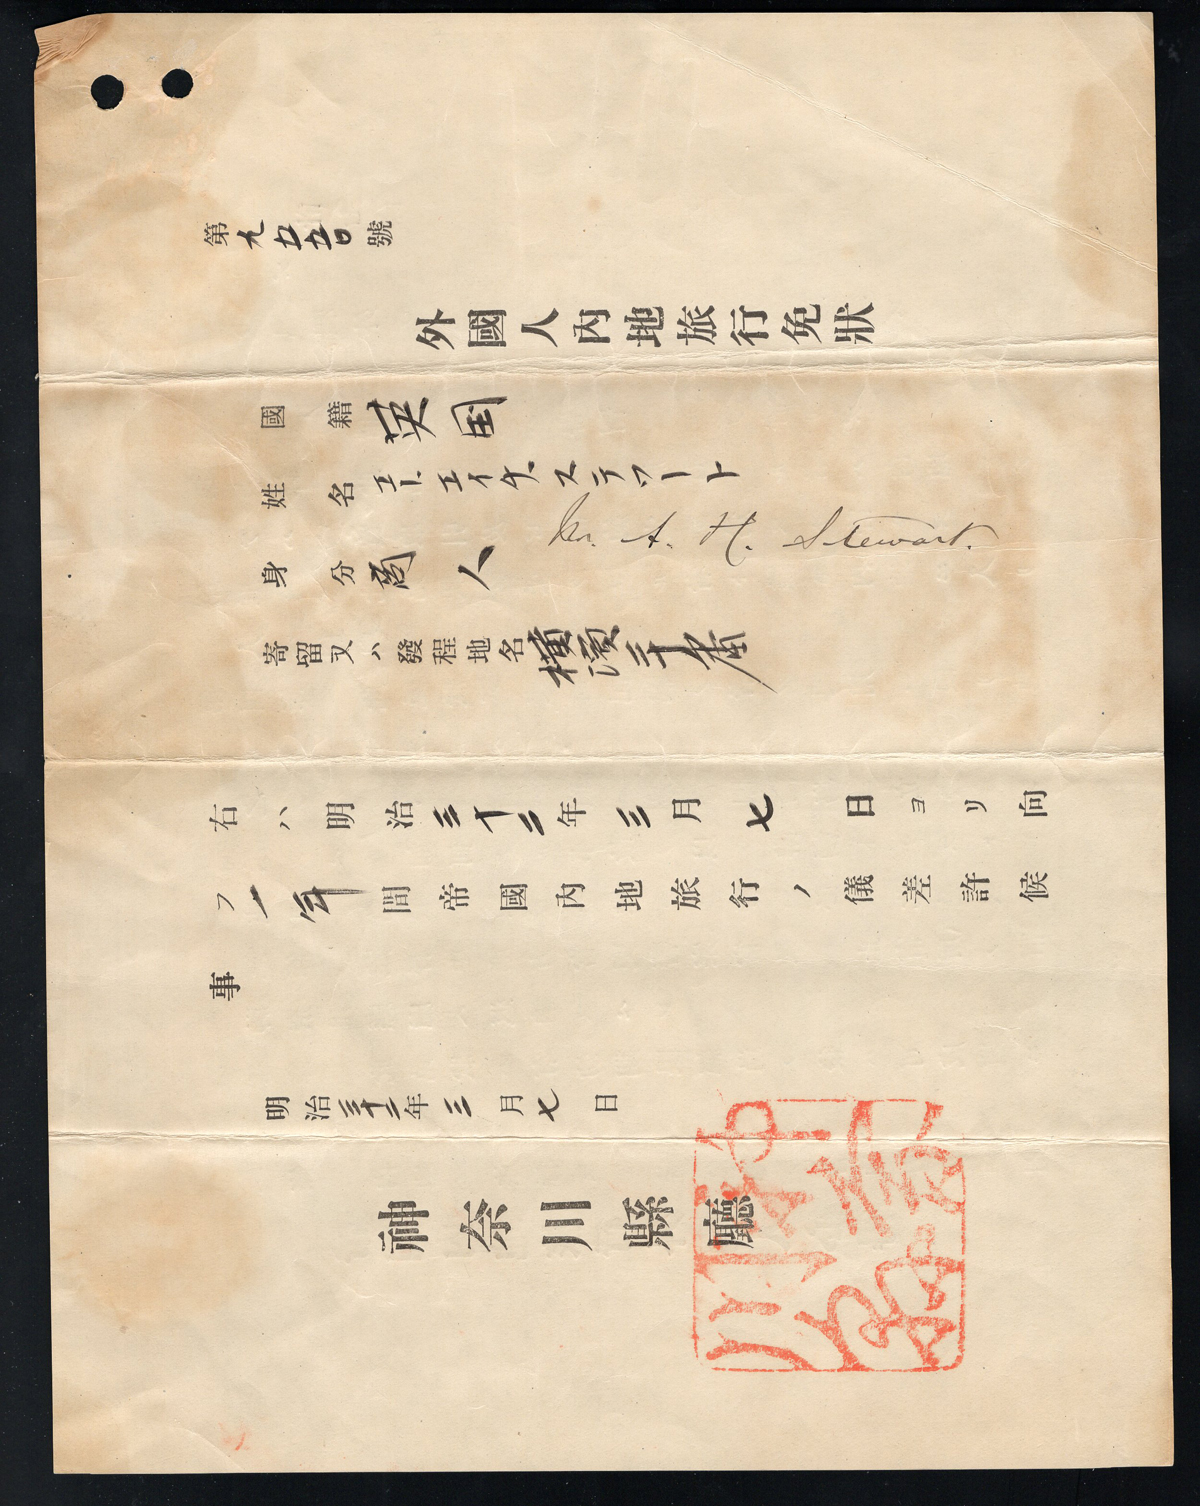 第九五五〇號
外國人內地旅行免狀
國籍 英国
姓名 エー.エイチ.ステワート
Mr. A. H. Stewart.
身分 商人
寄留又ハ發程地名 横濱三十番
右ハ明治三十二年三月七日ヨリ向
フ一年間帝國內地旅行ノ儀差許候
事
明治三十二年三月七日
神奈川縣廳
神奈川縣